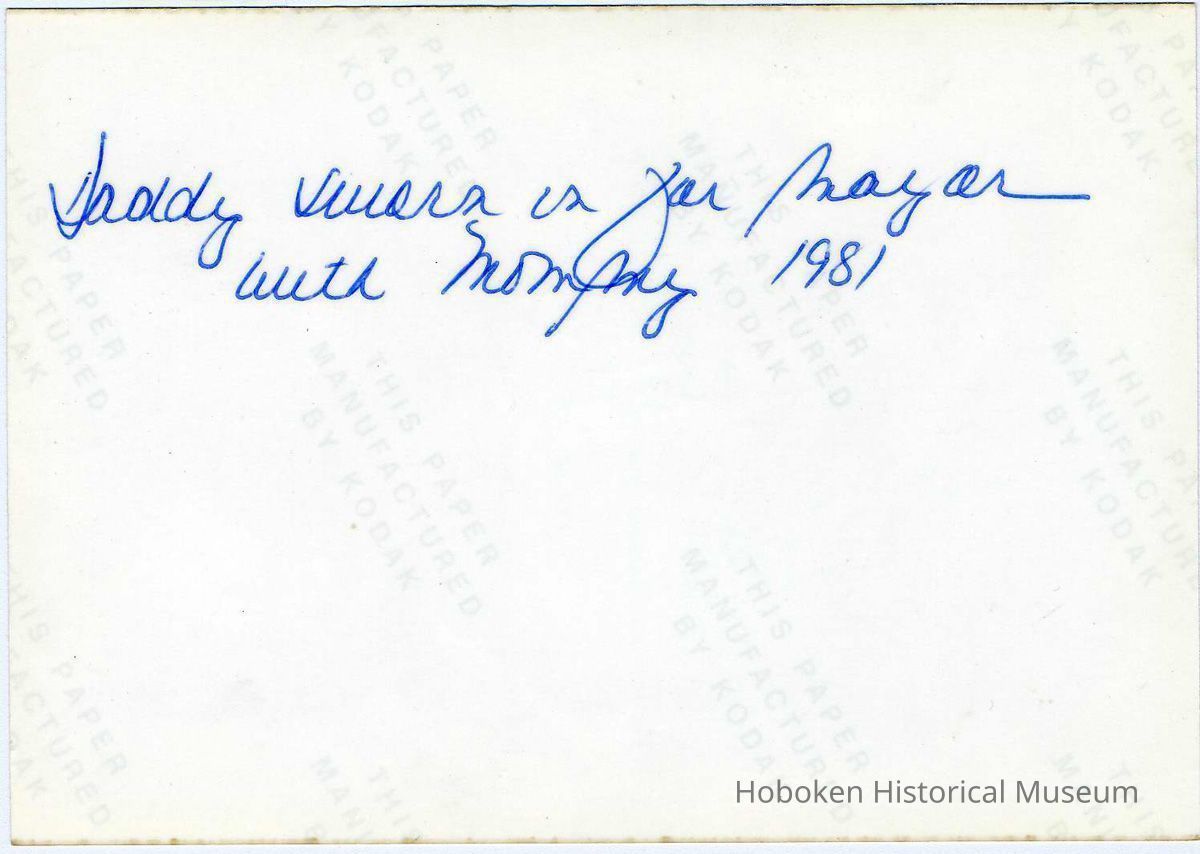 Daddy sworn in for Mayor
with Mommy 1981
THIS PAPER
MANUFACTURED
BY KODAK
Hoboken Historical Museum